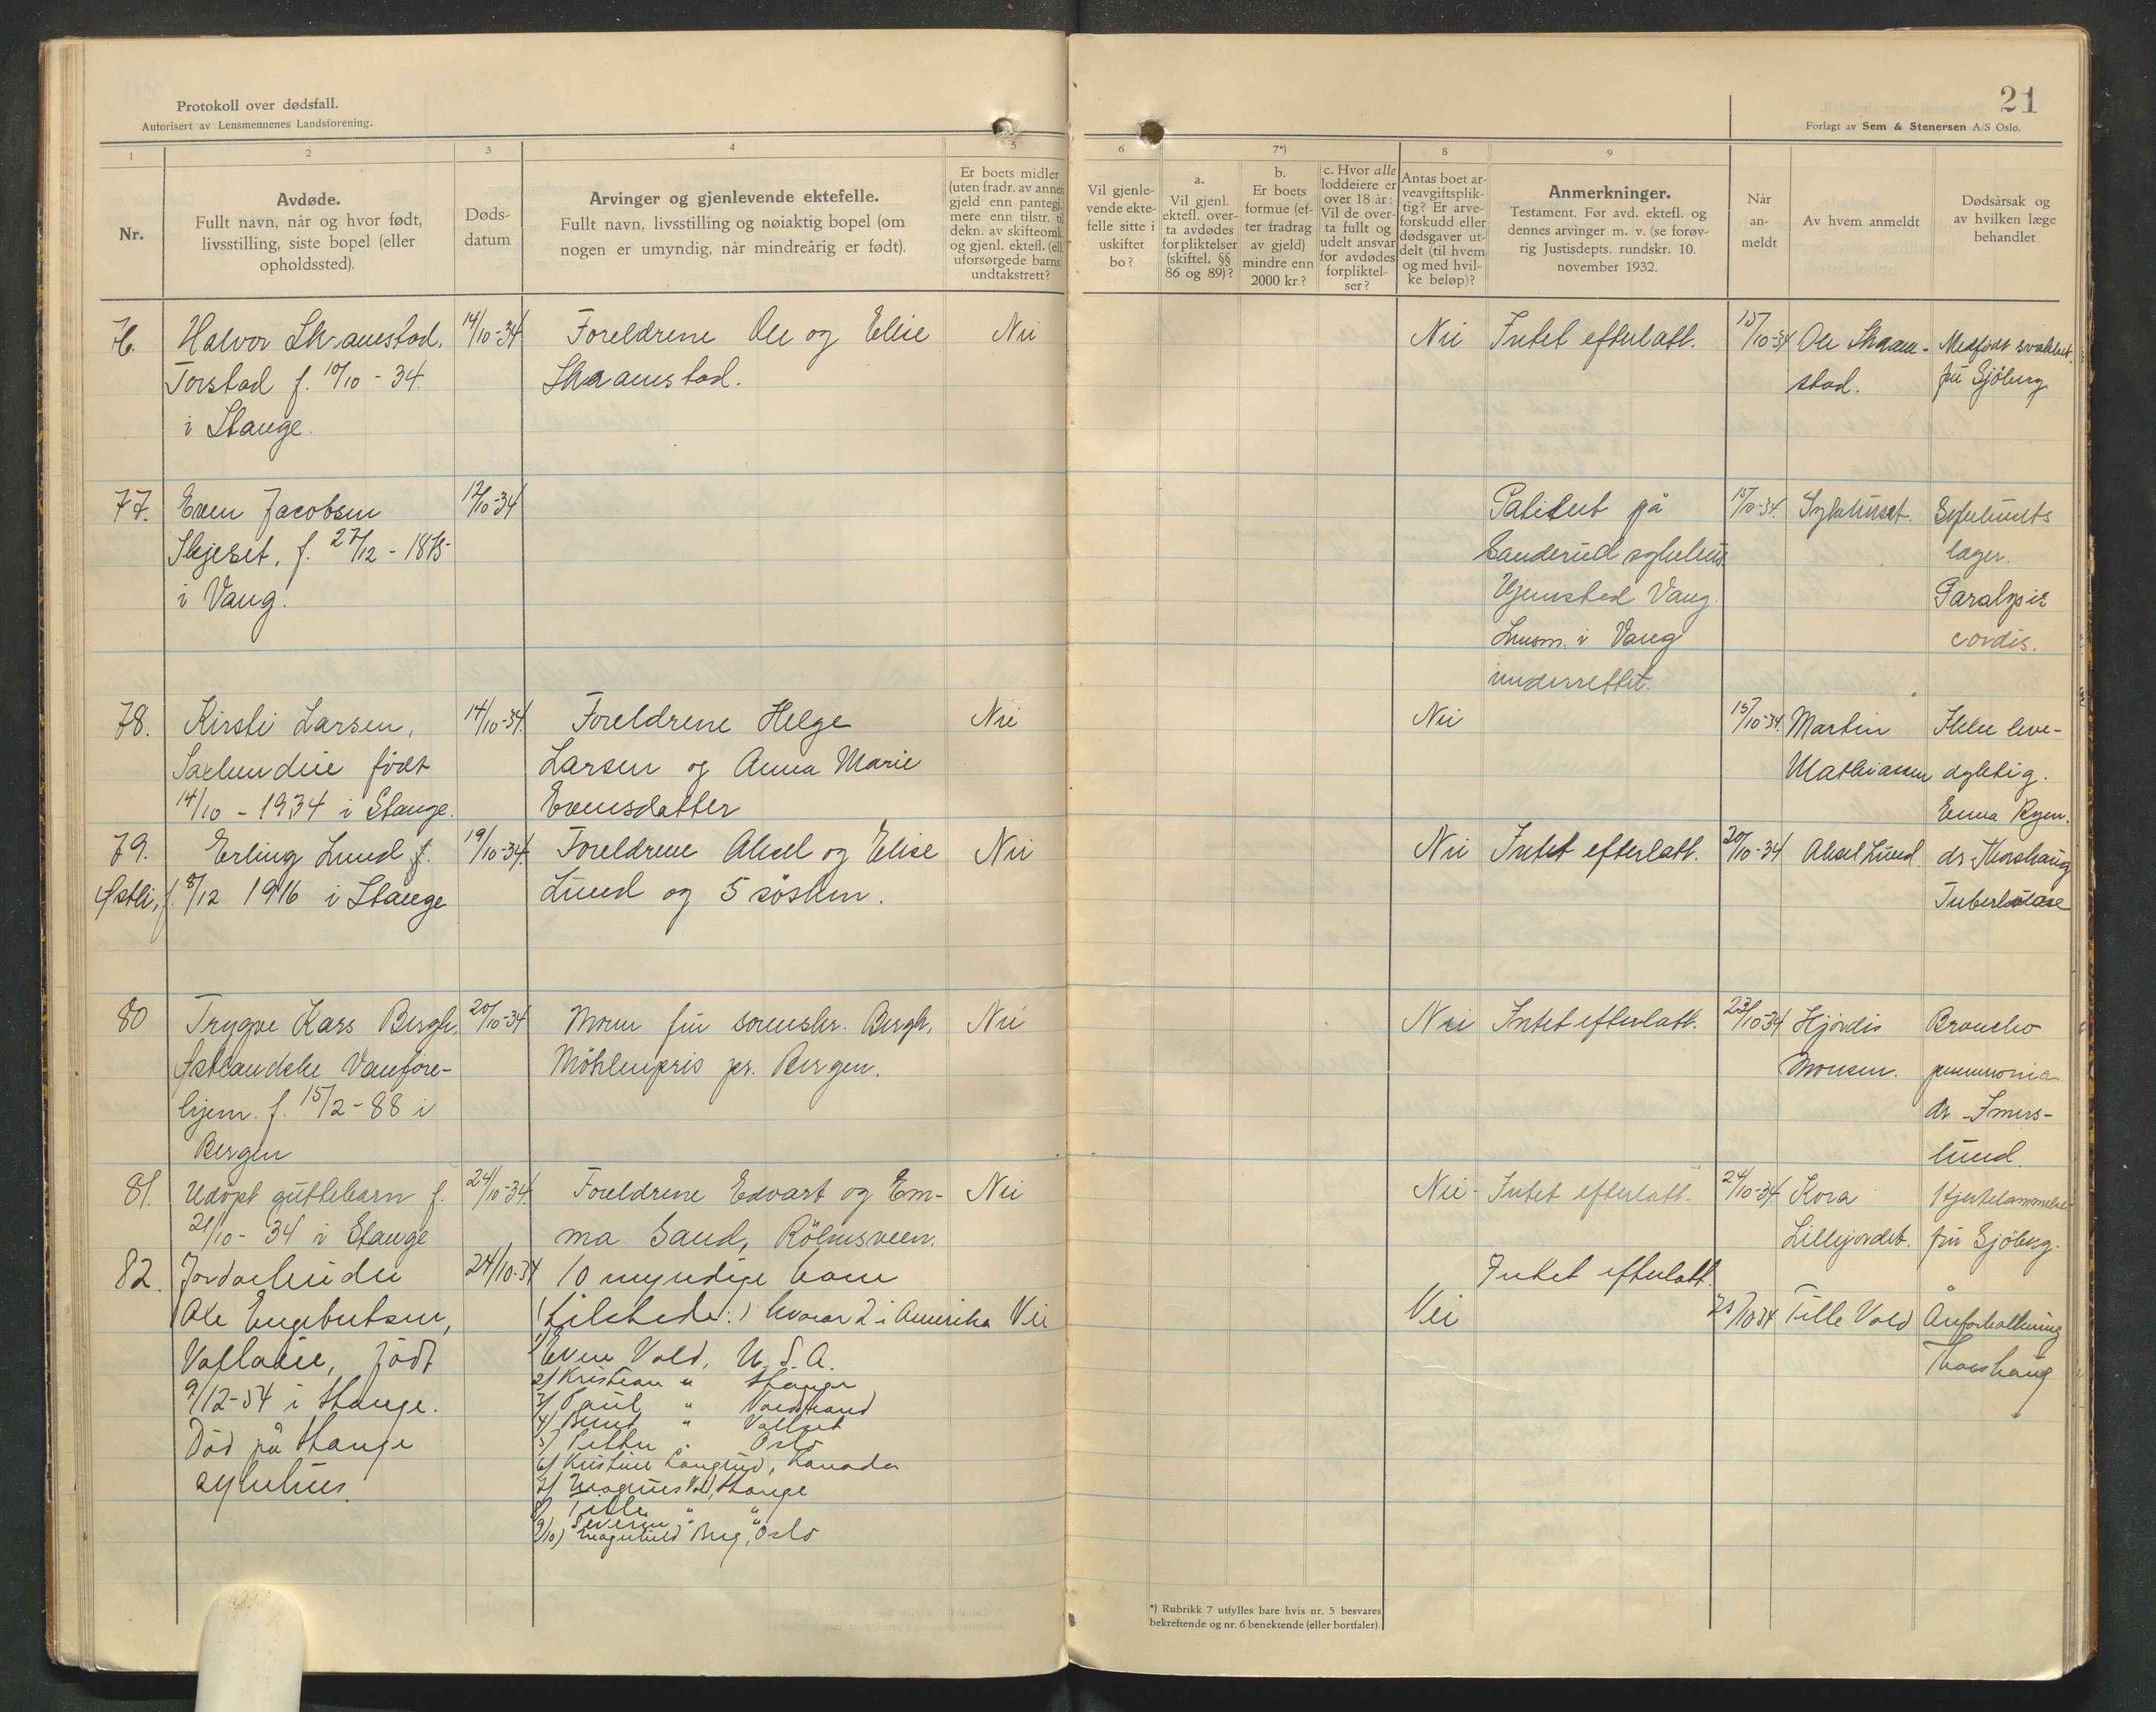 Protokoll over dødsfall.
Autorisert av Lensmennenes Landsforening.
21
Forlagt av Sem & Stenersen A/S Oslo.
1
2
3
4
5
6
7*)
8
9
Nr.
Avdøde.
Fullt navn, når og hvor født,
livsstilling, siste bopel (eller
opholdssted).
Døds-
datum
Arvinger og gjenlevende ektefelle.
Fullt navn, livsstilling og nøiaktig bopel (om
nogen er umyndig, når mindreårig er født).
Er boets midler
(uten fradr. av annen
gjeld enn pantegj.
mere enn tilstr. til
dekn. av skifteomk.
og gjenl. ektefl. (ell.
uforsørgede barns)
undtakstrett?
Vil gjenle-
vende ekte-
felle sitte i
uskiftet
bo?
a.
Vil gjenl.
ektefl. over-
ta avdødes
forpliktelser
(skiftel. §§
86 og 89)?
b.
Er boets
formue (ef-
ter fradrag
av gjeld)
mindre enn
2000 kr.?
c. Hvor alle
loddeiere er
over 18 år:
Vil de over-
ta fullt og
udelt ansvar
for avdødes
forpliktel-
ser?
Antas boet ar-
veavgiftsplik-
tig? Er arve-
forskudd eller
dødsgaver ut-
delt (til hvem
og med hvil-
ke beløp)?
Anmerkninger.
Testament. Før avd. ektefl. og
dennes arvinger m. v. (se forøv-
rig Justisdepts. rundskr. 10.
november 1932.
Når
an-
meldt
Av hvem anmeldt
Dødsårsak og
av hvilken læge
behandlet
76.
Halvor Skramstad,
Torstad f. 10/10 - 34.
i Stange.
14/10-34
Foreldrene Ole og Elise
Skramstad.
Nei
Nei
Intet efterlatt.
15/10-34
Ole Skram-
stad.
Medfødt svakhet.
fru Sjöberg.
77.
Even Jacobsen
Skjeset, f. 27/12 - 1875
i Vang.
12/10-34
Patient på
Sanderud sykehus
Hjemsted Vang.
Lensm. i Vang
underrettet.
15/10-34.
Sykehuset.
Sykehusets
læger.
Paralysis
cordis.
78.
Kirsti Larsen,
født
14/10 - 1934 i Stange.
14/10-34.
Foreldrene Helge
Larsen og Anna Marie
Evensdatter
Nei
Nei
15/10-34.
Martin
Mathiasen
Ikke leve-
dyktig.
Emma Ryen.
79.
Erling Lund f.
Østli, f. 8/12 1916 i Stange
19/10-34.
Foreldrene Aksel og Elise
Lund og 5 søsken.
Nei
Nei
Intet efterlatt.
20/10-34
Aksel Lund.
dr. Thorshaug
Tuberkulose
80
Trygve Kars Bergh,
Østlandske Vanføre-
hjem. f. 15/2-88 i
Bergen
20/10-34
Moren fru sorenskr. Bergh,
Möhlenpris pr. Bergen.
Nei
Nei
Intet efterlatt.
23/10-34
Hjördis
Monsen.
Broncho
pneumonia
dr. Smers-
lund.
81.
Udöpt guttebarn f.
21/10 - 34 i Stange
24/10-34.
Foreldrene Edvart og Em-
ma Sand, Röhnsveen.
Nei
Nei
Intet efterlatt.
24/10-34.
Kora
Lillejordet.
fru Sjöberg.
82.
Jordarbeider
Ole Engebretsen,
født
9/12-54 i Stange.
Död på Stange
sykehus.
24/10-34
10 myndige barn
(tilstede:) hvorav 2 i Amerika
1/ Even Vold, U.S.A.
2/ Kristian " Stange
3/ Paul "
4/ Bernt " Vallset
5/ Petter " Oslo
6/ Kristine Langrud, Kanada
7/ Magnus Vold, Stange
8/ Tille " "
9/ Severin " "
10) Magnhild Berg, Oslo
Nei
Nei
Intet efterlatt.
25/10 34
Tille Vold
Åreforkalkning
Thorshaug
*) Rubrikk 7 utfylles bare hvis nr. 5 besvares
bekreftende og nr. 6 benektende (eller bortfaler).